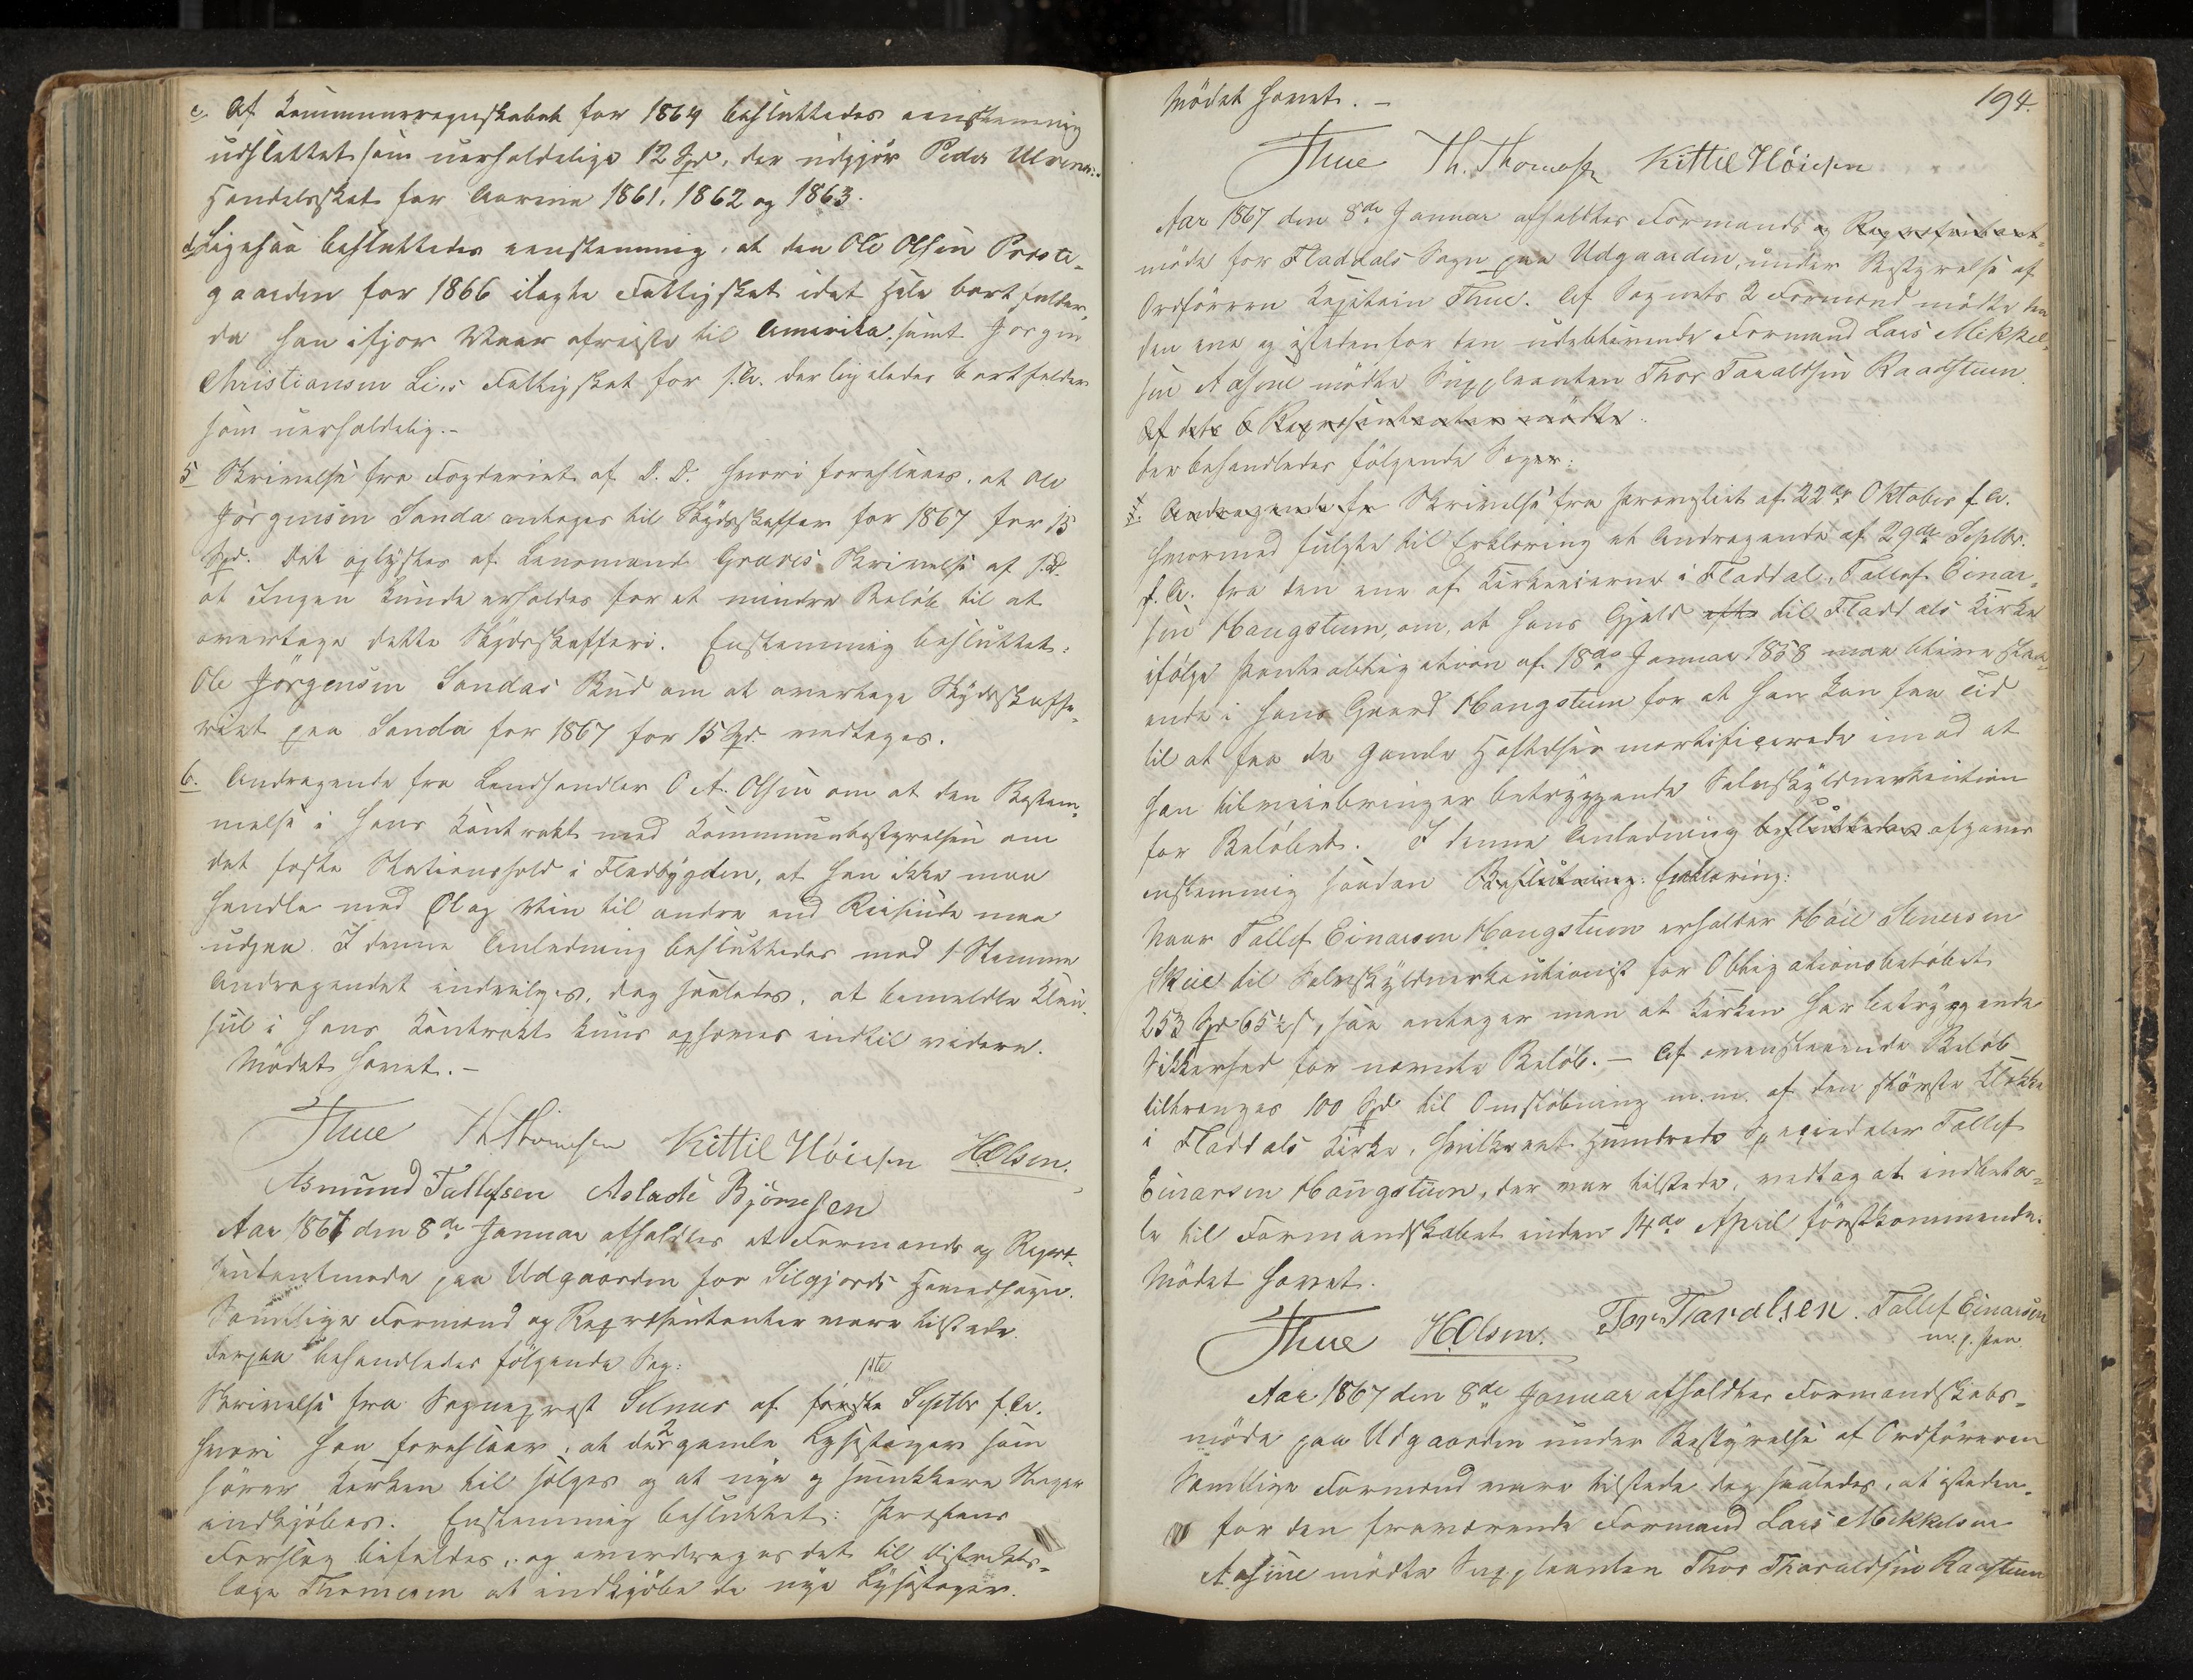 c, Af Kommuneregnskabet for 1864 besluttedes eenstemmig
udslettet som uerholdelige 12 Spd, der udgjør Peder
Handelsskat for Aarene 1861, 1862 og 1863.
d, Ligesaa besluttedes eenstemmig, at den Ole Olsen Præste-
gaarden for 1866 ilagte Fattigskat idet Hele bortfalder,
da han ifjor Vaar afreiste til Amerika, samt Jørgen
Christiansen Lies Fattigskat for f.A. der ligeledes bortfalder
som uerholdelig.-
5 Skrivelse fra Fogderiet af D.D. hvori foreslaaes, at Ole
Jørgensen Sanda antages til Skydsskaffer for 1867 for 15
Spd. Det oplystes af Lensmand Graves Skrivelse af s.D.
at Ingen kunde erholdes for et mindre Beløb til at
overtage dette Skydsskafferi. Enstemmig besluttet:
Ole Jørgensen Sandas Bud om at overtage Skydsskaffe-
riet paa Sanda for 1867 for 15 Spd. vedtages.
6. Andragende fra Landhandler O A. Olsen om at den Bestem-
melse i hans Kontrakt med Kommunebestyrelsen om
det faste Stationshold i Fladbygden, at han ikke maa
handle med Øl og Vin til andre end Reisende maa
udgaa. I denne Anledning besluttedes med 1 Stemme
Andragendet indvilges, dog saaledes, at bemeldte Klau-
sul i hans Kontrakt kuns ophæves indtil videre.
Mødet hævet.-
Thue Th. Thomesen Kittil Høiesen H.Olsen.
Asmund Tallefsen Aslak Bjørnsen
Aar 1867 den 8de Januar afholdtes et Formands og Repræ-
sentantmøde paa Udgaarden for Silgjords Hovedsogn.
Samtlige Formænd og Repræsentanter vare tilstede.
Derpaa behandledes følgende Sag:
Skrivelse fra Sogneprest Selmer af første 1ste Septbr f.A.
hvori han foreslaar, at de 2 gamle Lysestager som
hører Kirken til sælges og at nye og smukkere Stager
indkjøbes. Enstemmig besluttet: Prestens
Forslag bifaldes, og overdrages det til Distrikts-
læge Thomesen at indkjøbe de nye Lysestager.
194.
Mødet hævet. -
Thue Th. Thomesen Kittil Høiesen
Aar 1867 den 8de Januar afholdtes Formands og Repræsentant-
møde for Fladdals Sogn paa Udgaarden, under Bestyrelse af
Ordføreren Kapitain Thue. Af Sognets 2 Formænd mødte kun
den ene og istedenfor den udeblivende Formand Lars Mikkel-
sen Aasine mødte Suppleanten Thor Taraldsen Raastuen.
Af dets 6 Repræsentanter mødte
Der behandledes følgende Sager:
1. Andragende fra Skrivelse fra Provstiet af 22de Oktober f.A.
hvormed fulgte til Erklæring et Andragende af 29de Septbr.
f.A. fra den ene af Kirkeeierne i Fladdal, Tallef Einar-
sen Haugstuen, om, at hans Gjæld efter til Fladdals Kirke
ifølge Panteobligation af 18de Januar 1858 maa blive staa-
ende i hans Gaard Haugstuen for at han kan faa Tid
til at faa de gamle Heftelser mortificerede imod at
han tilveiebringer betryggende Selvskyldnerkaution
for Beløbet. I denne Anledning besluttedes afgaves
enstemmig saadan Beslutning: Erklæring:
Naar Tallef Einarsen Haugstuen erholder Steinersen
Skeie til Selvskyldnerkautionist for Obligationsbeløbet
253 Spd 65½ s, saa antager man at Kirken har betryggende
Sikkerhed for nævnte Beløb. - Af ovenstaaende Beløb
tiltrænges 100 Spd til Omstøbning m.m. af den største Klokke
i Fladdals Kirke, hvilke et Hundrede Speciedaler Tallef
Einarsen Haugstuen, der var tilstede, vedtog at indbeta-
le til Formandskabet inden 14de April førstkommende.
Mødet hævet.
Thue H.Olsen. Tor Taralsen. Tallef Einarsen
m. p. Pen.
Aar 1867 den 8de Januar afholdtes Formandskabs-
møde paa Udgaarden under Bestyrelse af Ordføreren
Samtlige Formænd vare tilstede dog saaledes, at isteden-
for den fraværende Formand Lars Mikkelsen
Aasine mødte Suppleanten Thor Tharaldsen Raastuen